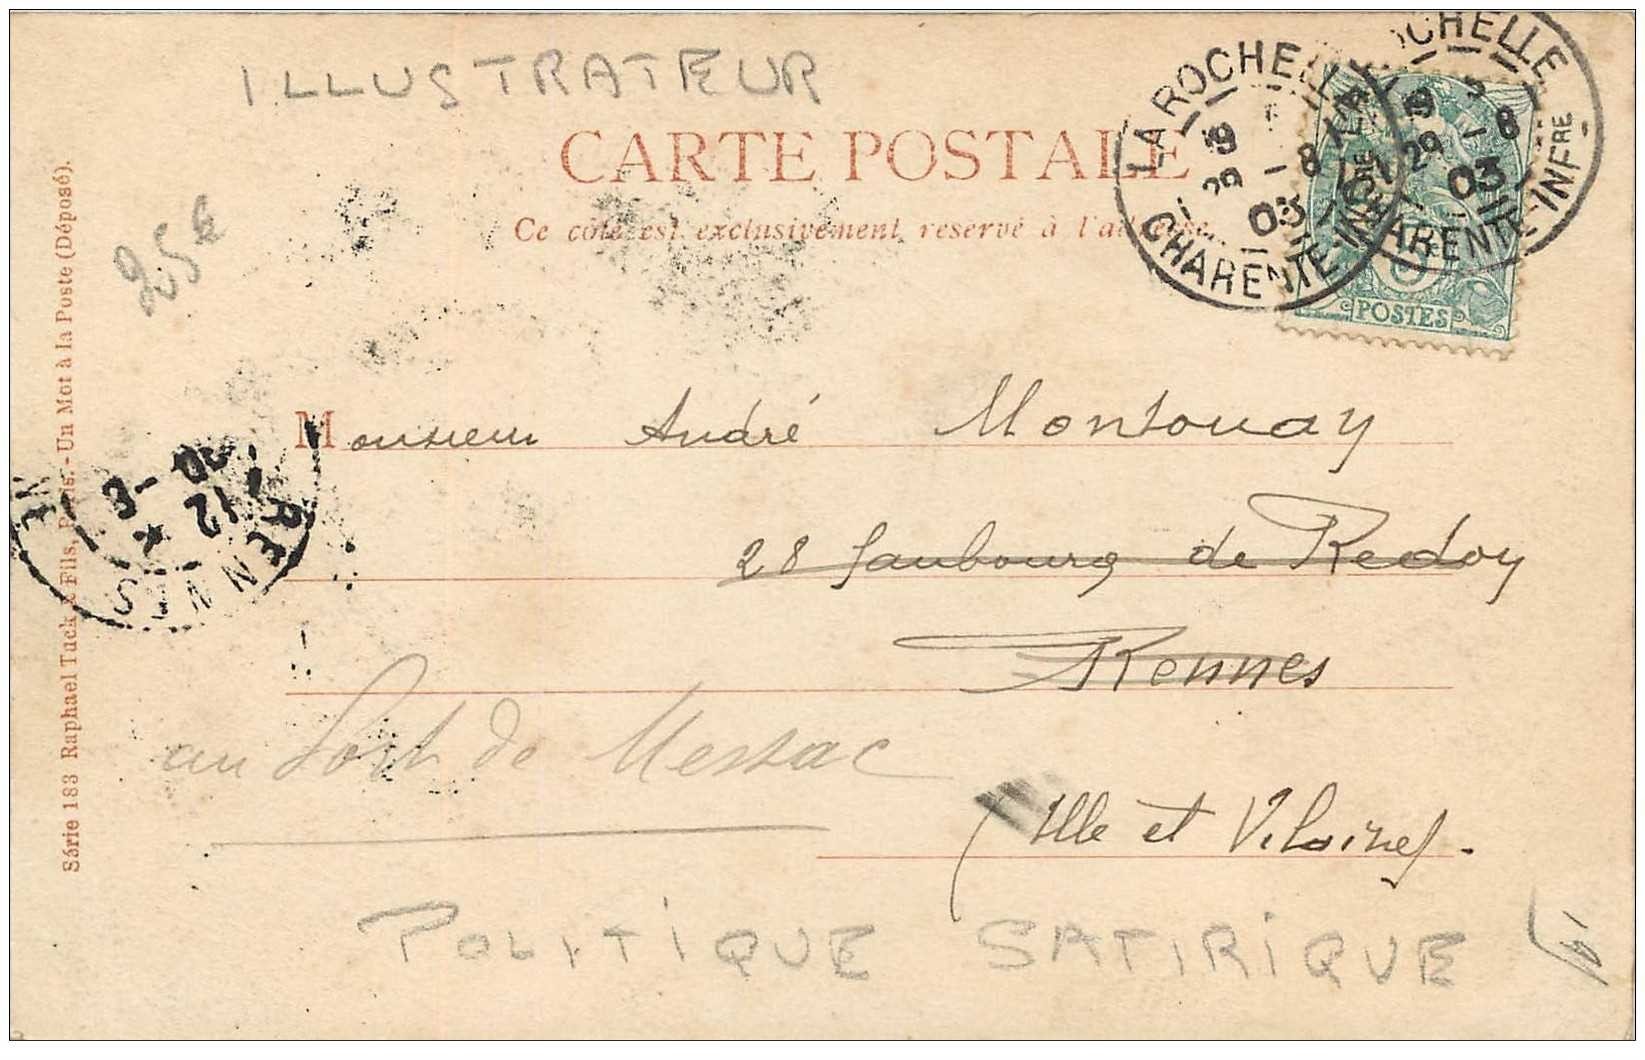 ILLUSTRATEUR
CARTE POSTALE
Ce côté est exclusivement reservé à l'adresse.
LA ROCHELLE
19
29 -8
03
CHARENTE-INFRE
LA ROCHELLE
19
29 -8
03
CHARENTE-INFRE
POSTES
25€
Série 183 Raphael Tuck & Fils, Paris.-Un Mot à la Poste (Déposé).
Monsieur André Montouay
28 faubourg de Redon
Rennes
RENNES
12
au Port de Messac
Ille et Vilaine
POLITIQUE SATIRIQUE